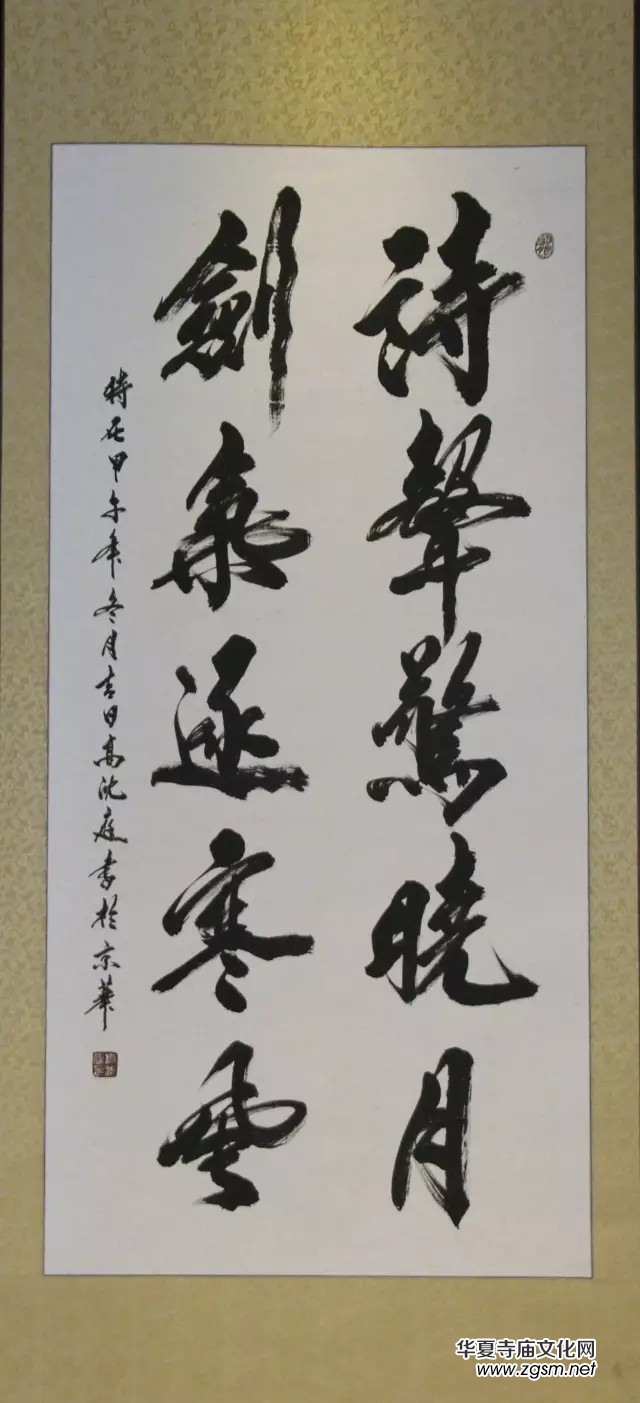 詩聲驚曉月
劍氣逐寒雲
時在甲午年冬月吉日高沈庭書於京華
华夏寺庙文化网
www.zgsm.net